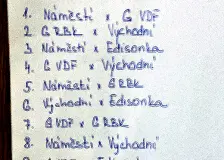 1. Náměstí x G VDF
2. GRBK x Východní
3. Náměstí x Edisonka
4. G VDF x Východní
5. Náměstí x GRBK
6. Východní x Edisonka
7. GVDF x GRBK
8. Náměstí x Východní